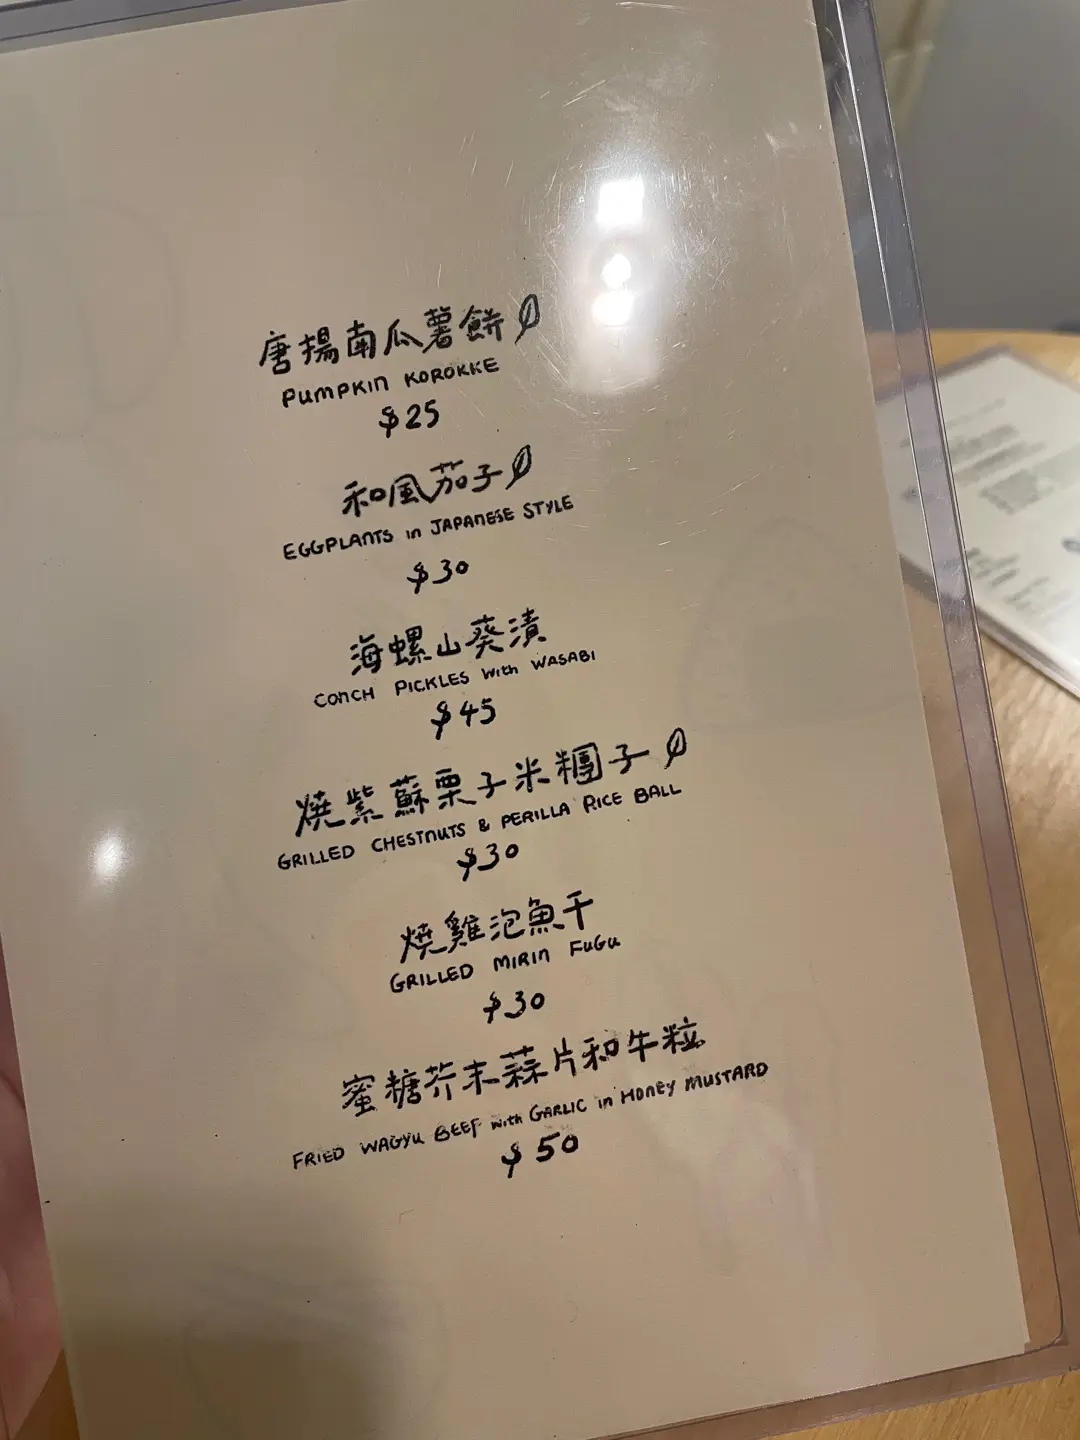 唐揚南瓜薯餅
PUMPKIN KOROKKE
$25
和風茄子
EGGPLANTS in JAPANESE STYLE
$30
海螺山葵漬
CONCH PICKLES with WASABI
$45
燒紫蘇栗子米糰子
GRILLED CHESTNUTS & PERILLA RICE BALL
$30
燒雞泡魚干
GRILLED MIRIN FUGU
$30
蜜糖芥末蒜片和牛粒
FRIED WAGYU BEEF with GARLIC in HONEY MUSTARD
$50